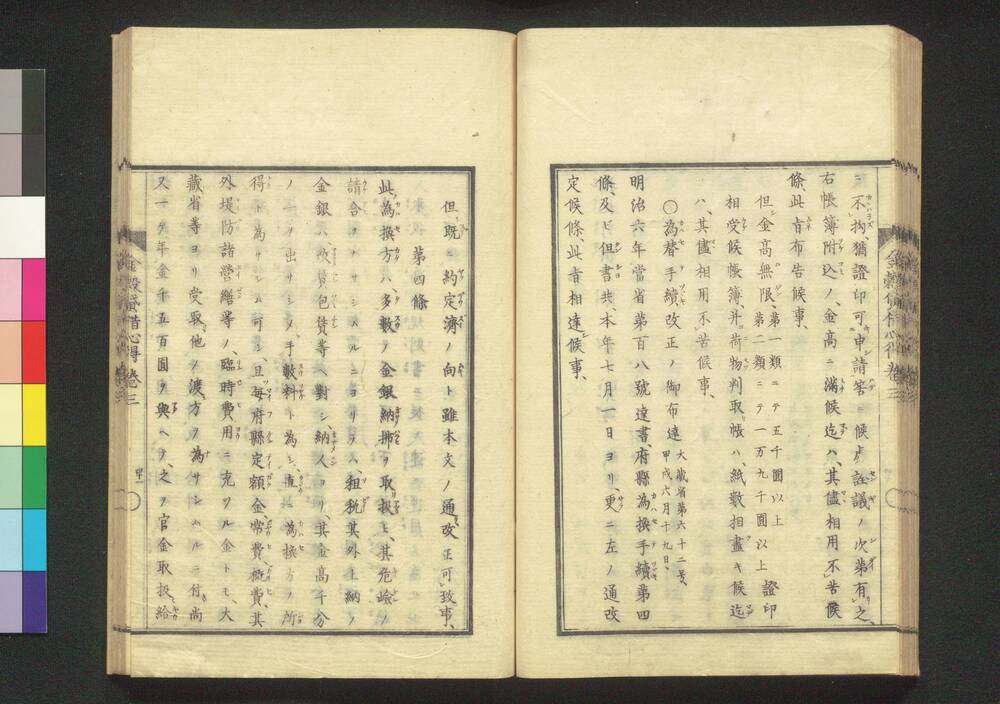 ニ不拘、猶證印可申請筈ニ候處、詮議ノ次第有之、
右帳簿附込ノ、金高ニ滿候迄ハ、其儘相用不苦候
條、此旨布告候事、
但金高無限、第一類ニテ五千圓以上
第二類ニテ一万九千圓以上 證印
相受候帳簿、并荷物判取帳ハ、紙數相盡キ候迄
ハ、其儘相用不苦候事、
○為替手續改正ノ御布達 大藏省第六十二号、
甲戌六月十九日、
明治六年當省第百八號達書、府縣為換手續第四
條、及ビ但書共、本年七月一日ヨリ、更ニ左ノ通改
定候條、此旨相達候事、
但、既ニ約定濟ノ向ト雖本文ノ通改正可致事、
第四條
此為換方ハ、多數ノ金銀納拂ヲ取扱ヒ、其危嶮ノ
請合ヲナサシムルニヨリテハ、租税其外上納ノ
金銀
包賃等ヘ對シ、納人ヨリ、其金高千分
ノ一ヲ出サシメ、手數料ト為シ、直ニ為換方ノ所
得ト為サシム可シ、且毎府縣定額金常費概費、其
外堤防諸營繕等ノ、臨時費用ニ充ツル金トモ、大
藏省等ヨリ受取、他ノ渡方ヲ為サシムルニ付、尚
又一ケ年金千五百圓ヲ與ヘテ、之ヲ官金取扱給
卷三